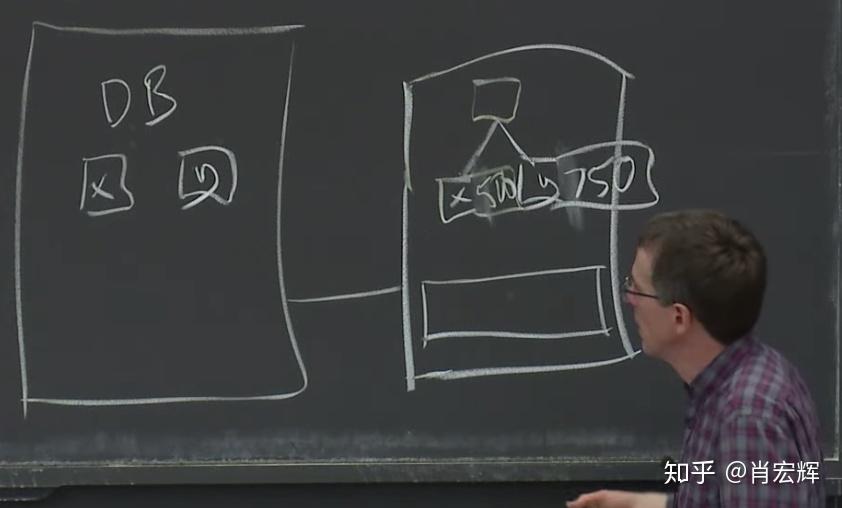 DB
x y
x 500 y 750
知乎 @肖宏辉